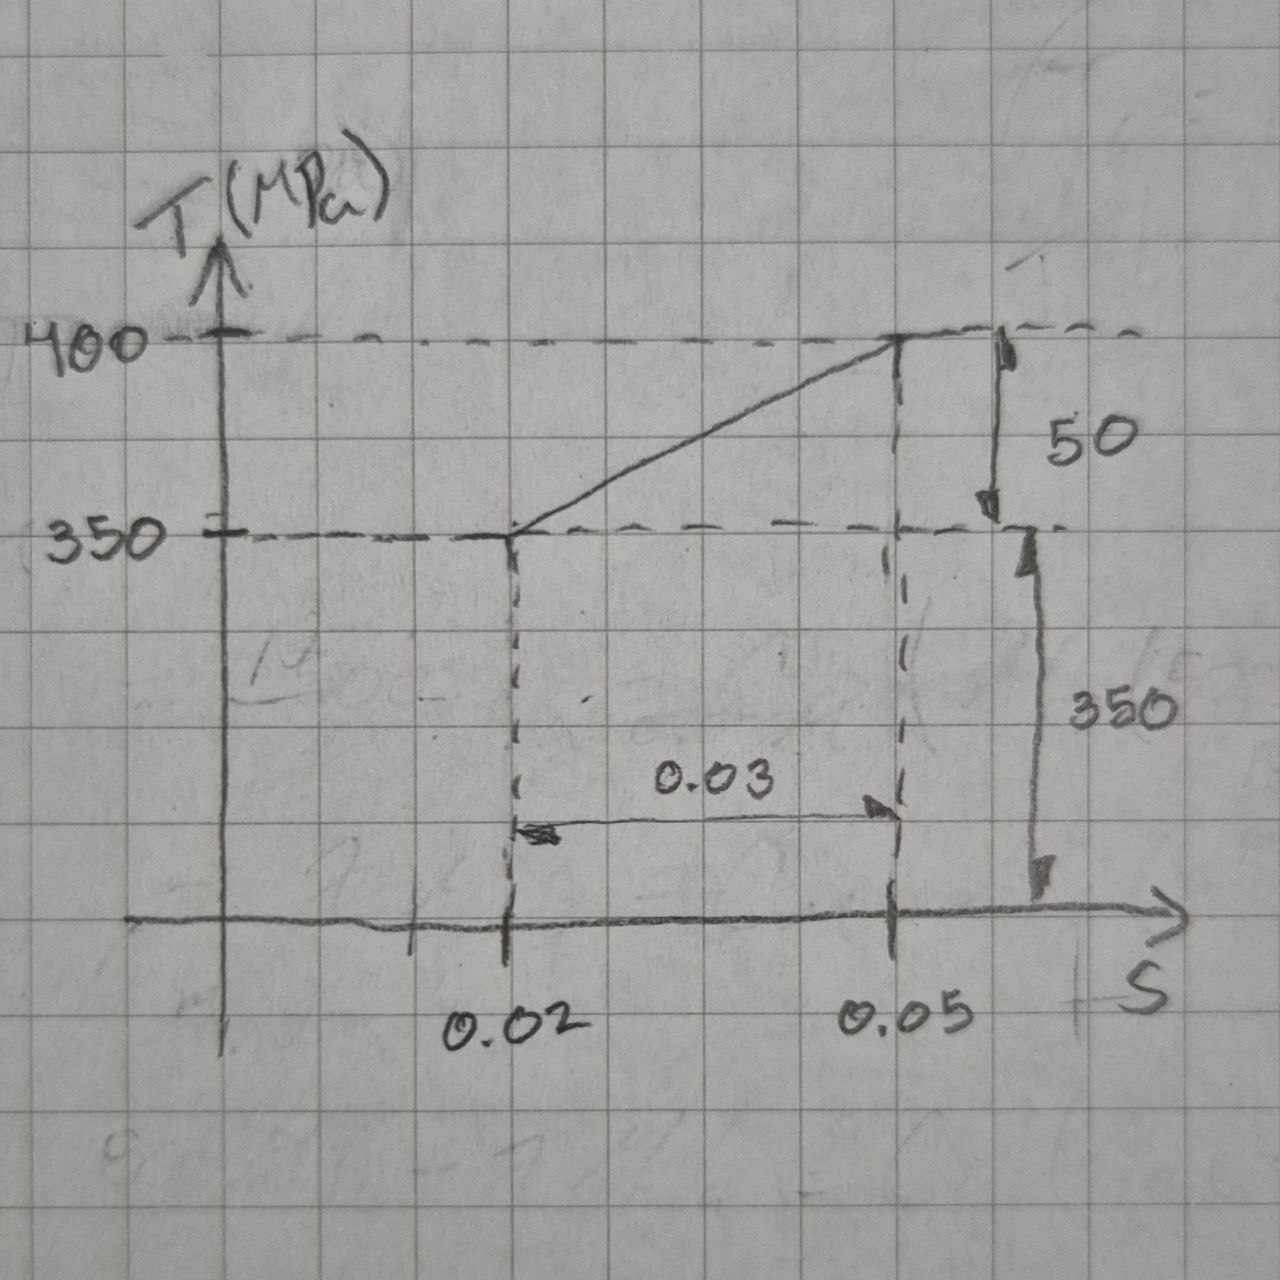 T(MPa)
400
50
350
350
0.03
0.02
0.05
S